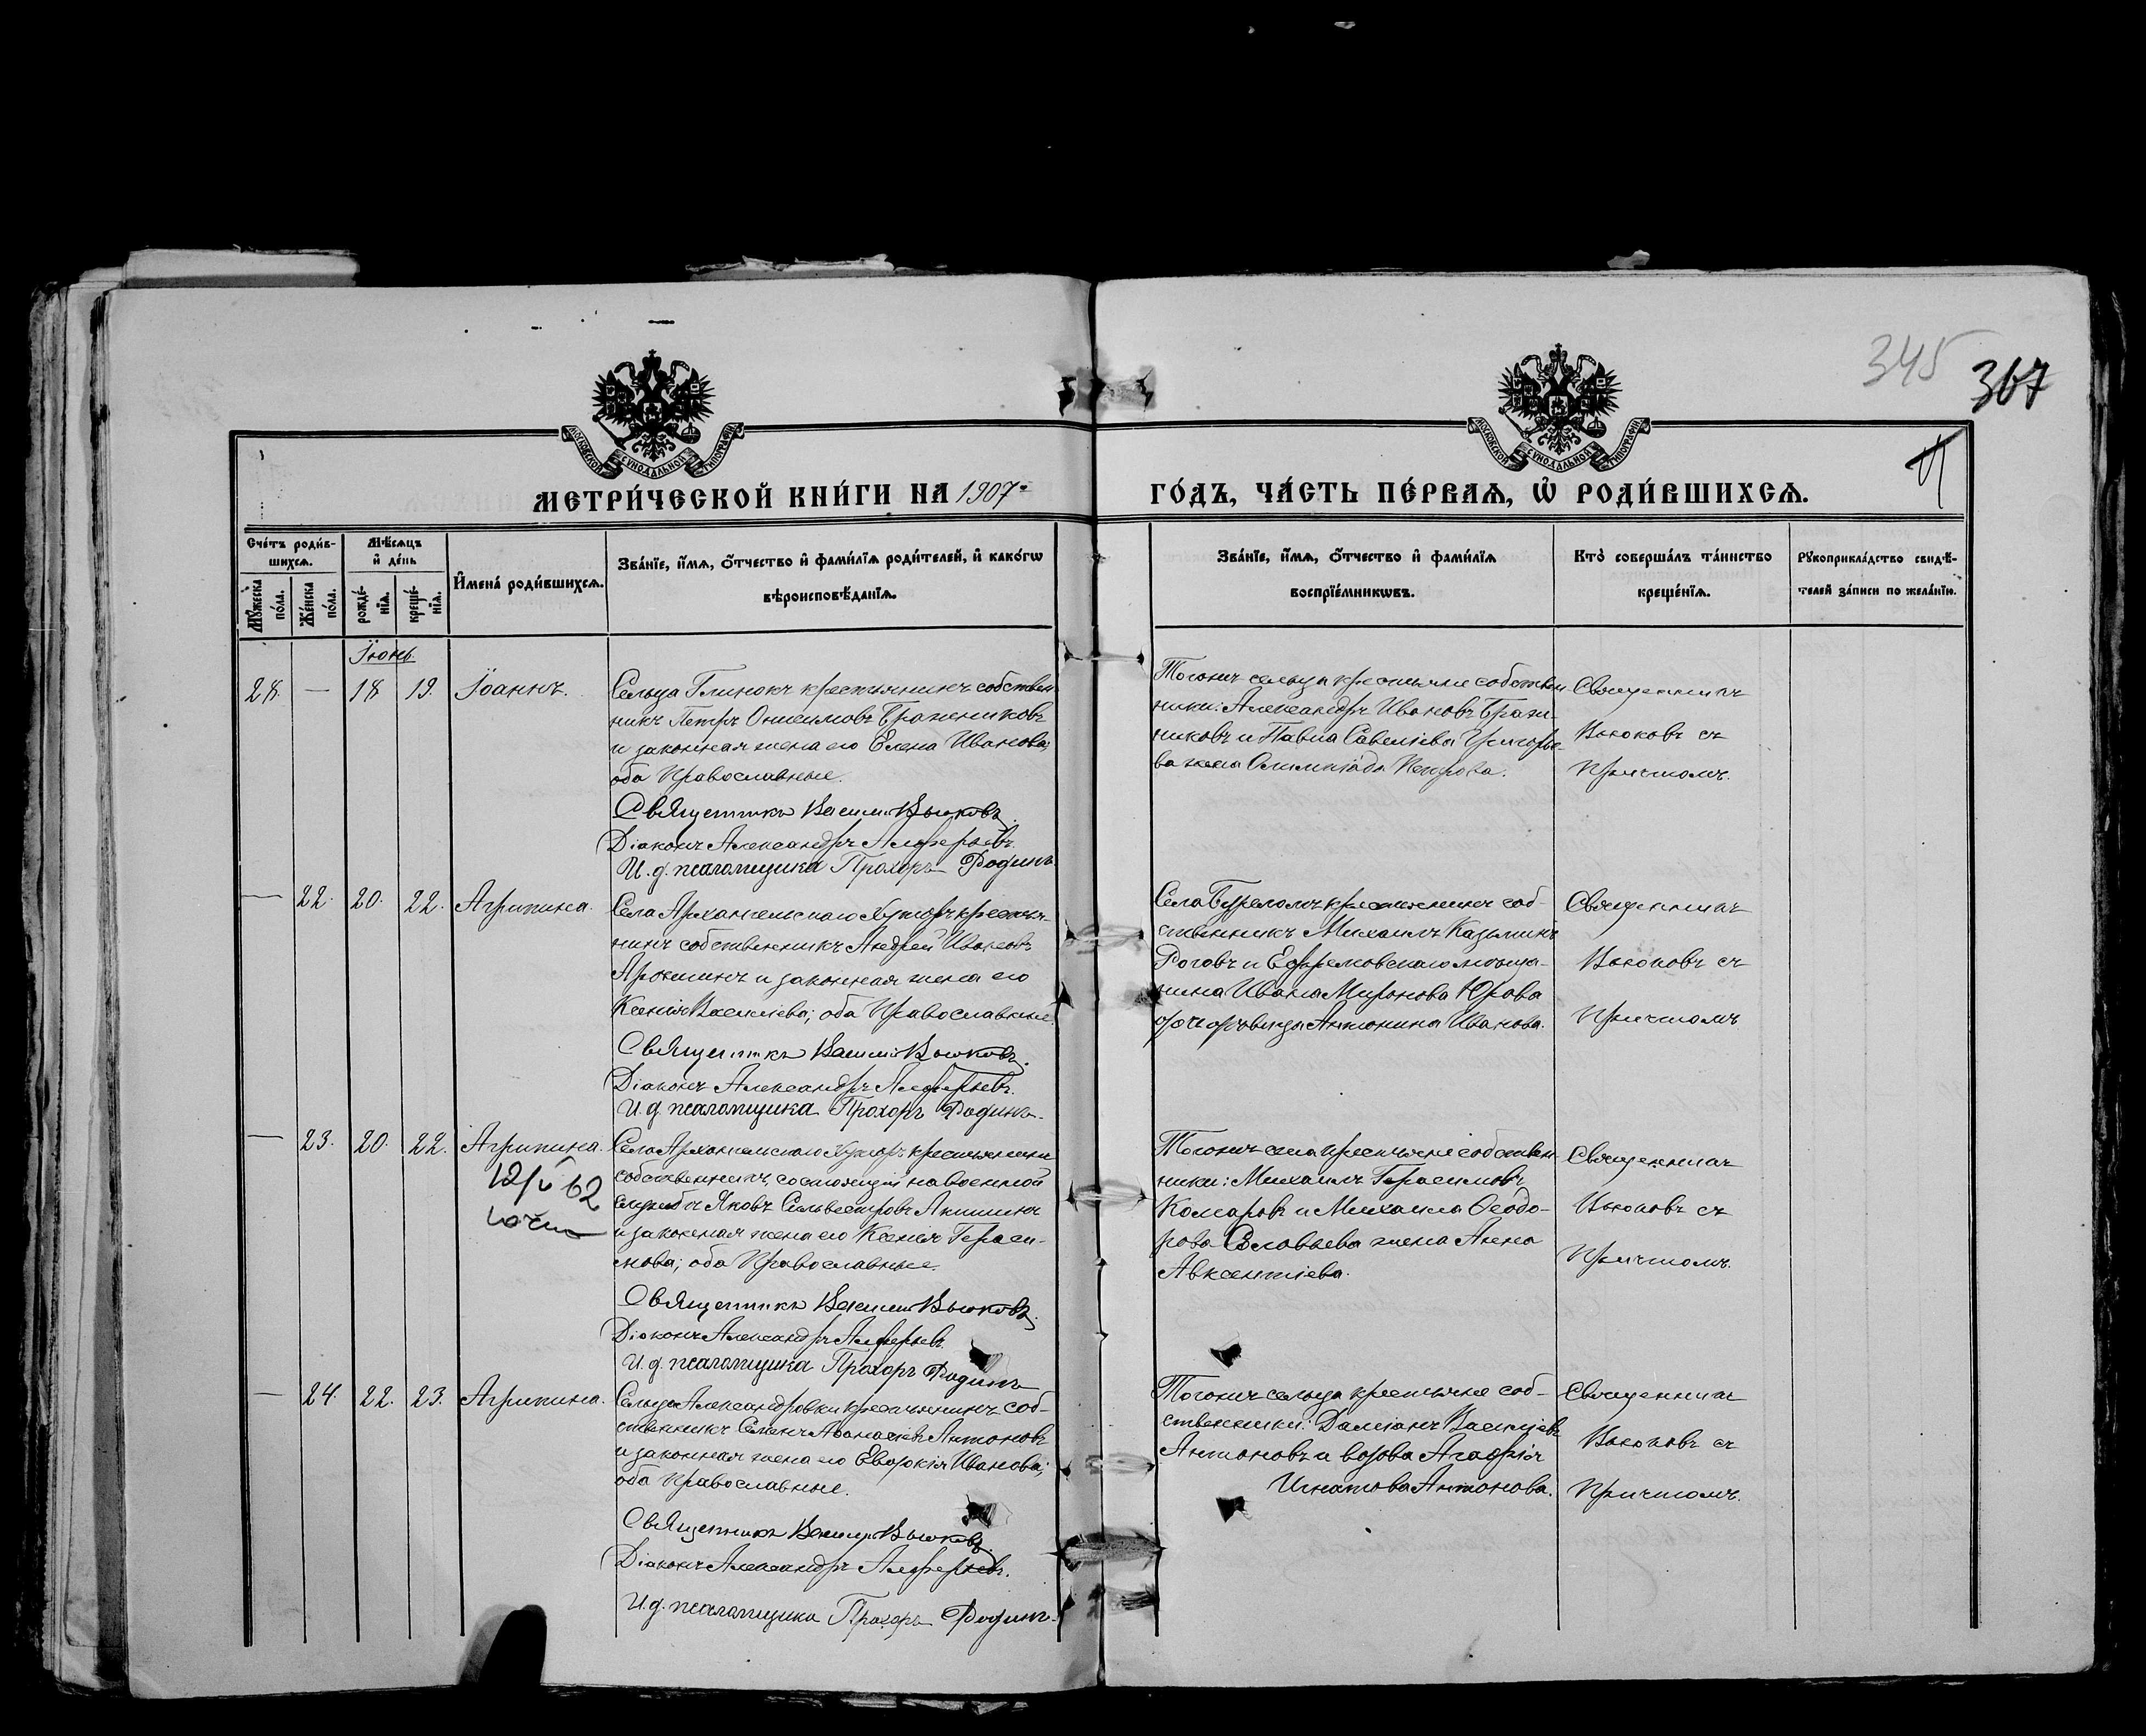 345
367
МОСКОВСКОЙ СѴНОДАЛЬНОЙ ТИПОГРАФІИ
МОСКОВСКОЙ СѴНОДАЛЬНОЙ ТИПОГРАФІИ
МЕТРИ́ЧЕСКОЙ КНИ́ГИ НА 1907
ГО́ДЪ, ЧА́СТЬ ПЕ́РВАѦ, Ѡ҆ РОДИ́ВШИХСѦ.
Сче́тъ роди́в-
шихсѧ.
Мꙋ́жеска по́ла.
Же́нска по́ла.
Мѣ́сѧцъ
и҆ де́нь
рожде́-
нїѧ.
креще́-
нїѧ.
И҆мена̀ роди́вшихсѧ.
Зва́нїе, и҆́мѧ, о҆́тчество и҆ фами́лїѧ роди́телей, и҆ како́гѡ
вѣроисповѣ́данїѧ.
Зва́нїе, и҆́мѧ, о҆́тчество и҆ фами́лїѧ
воспрїе́мникѡвъ.
Кто̀ соверша́лъ та́инство
креще́нїѧ.
Рꙋкоприкла́дство свидѣ́-
телей за́писи по жела́нїю.
Іюнь.
28. — 18 19. Іоаннъ.
Сельца Глинокъ крестьянинъ собствен
никъ Петръ Онисимовъ Бражниковъ
и законная жена его Елена Иванова;
оба Православные.
Священникъ Василий Вьюковъ.
Діаконъ Александръ Алферьевъ.
И. д. псаломщика Прохоръ Родинъ
Тогоже сельца крестьяне собствен
ники: Александръ Ивановъ Бражн-
иковъ и Павла Савелiева Григорье-
ва жена Олимпіада Петрова.
Священникъ
Вьюковъ съ
Причтомъ.
— 22. 20. 22. Агрипина.
Села Архангельскаго Хуторъ крестья-
нинъ собственникъ Андрей Ивановъ
и законная жена его
Ксенія Василіева; оба Православные.
Священникъ Василий Вьюковъ.
Діаконъ Александръ Алферьевъ.
И. д. псаломщика Прохоръ Родинъ.
Села Буреломъ крестьянинъ соб-
ственникъ Михаилъ Казьминъ
Роговъ и Ефремовскаго мѣща-
нина Ивана Миронова Юрова
дочь дѣвица Антонина Иванова.
Священникъ
Вьюковъ съ
Причтомъ
— 23. 20. 22. Агрипина.
62
Села Архангельскаго Хуторъ крестьянинъ
собственникъ, состоящій на военной
службѣ Яковъ Сильвестровъ Аникинъ
и законная жена его Ксенія Гераси-
мова; оба Православные.
Священникъ Василий Вьюковъ.
Діаконъ Александръ Алферьевъ
И. д. псаломщика Прохоръ Родинъ
Тогоже села крестьяне собствен
ники: Михаилъ Герасимовъ
Комаровъ и Михаила Ѳеодо-
рова Соловьева жена Анна
Авксентіева.
Священникъ
Вьюковъ съ
Причтомъ.
— 24. 22. 23. Агрипина.
Сельца Александровки крестьянинъ соб-
ственникъ Семенъ Аѳанасіевъ Антоновъ
и законная жена его Евдокія Иванова;
оба Православные.
Священникъ Василий Вьюковъ.
Діаконъ Александръ Алферьевъ.
И. д. псаломщика Прохоръ Родинъ.
Тогоже сельца крестьяне соб-
ственники: Даміанъ Василіевъ
Антоновъ и вдова Агафія
Игнатова Антонова.
Священникъ
Вьюковъ съ
Причтомъ.